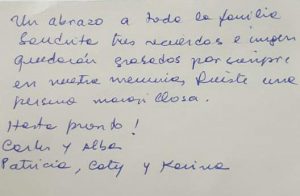 Un abrazo a toda la familia
Sandrita tus recuerdos e imagen
quedarán grabados por siempre
en nuestra memoria, Fuiste una
persona maravillosa.
Hasta pronto!
Carlos y Alba
Patricia, Caty y Karina